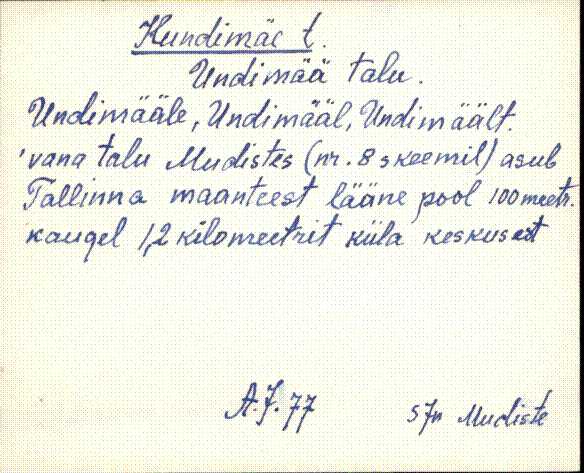 Kundimäe t.
Undimää talu.
Undimääle, Undimääl, Undimäält.
vana talu Mudistes (nr. 8 skeemil) asub
Tallinna maanteest lääne pool 100 meetr.
kaugel 1,2 kilomeetrit küla keskusest
A.J. 77
SJn Mudiste